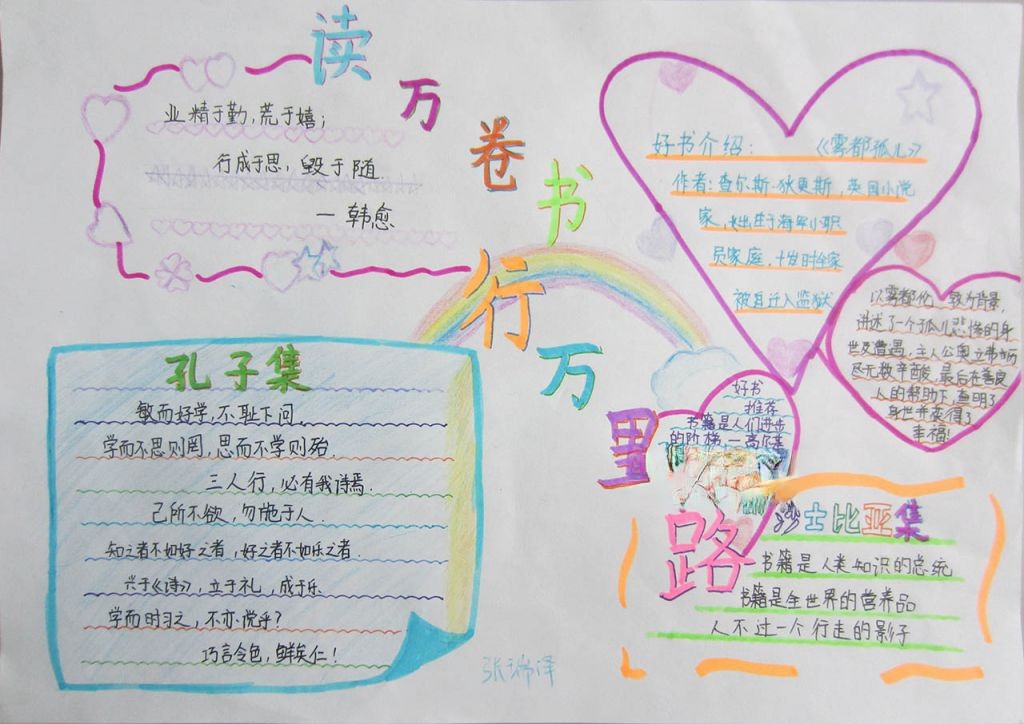 读万卷书行万里路
业精于勤,荒于嬉;
行成于思,毁于随
一韩愈
好书介绍:《雾都孤儿》
作者:查尔斯·狄更斯,英国小说
家,出生于海军小职
员家庭,十岁时全家
被迫迁入监狱
以雾都伦敦为背景,
讲述了一个孤儿悲惨的身
世及遭遇,主人公奥立弗
尽无数辛酸,最后在善良
人的帮助下,查明了
身世并获得了
幸福!
好书
推荐
书籍是人们进步
的阶梯一高尔基
孔子集
敏而好学,不耻下问.
学而不思则罔,思而不学则殆.
三人行,必有我诗焉.
己所不欲,勿施于人.
知之者不如好之者,好之者不如乐之者.
兴于《诗》,立于礼,成于乐
学而时习之,不亦悦乎?
巧言令色,鲜矣仁!
士比亚集
书籍是人类知识的总统
书籍是全世界的营养品
人不过一个行走的影子
张瑞泽